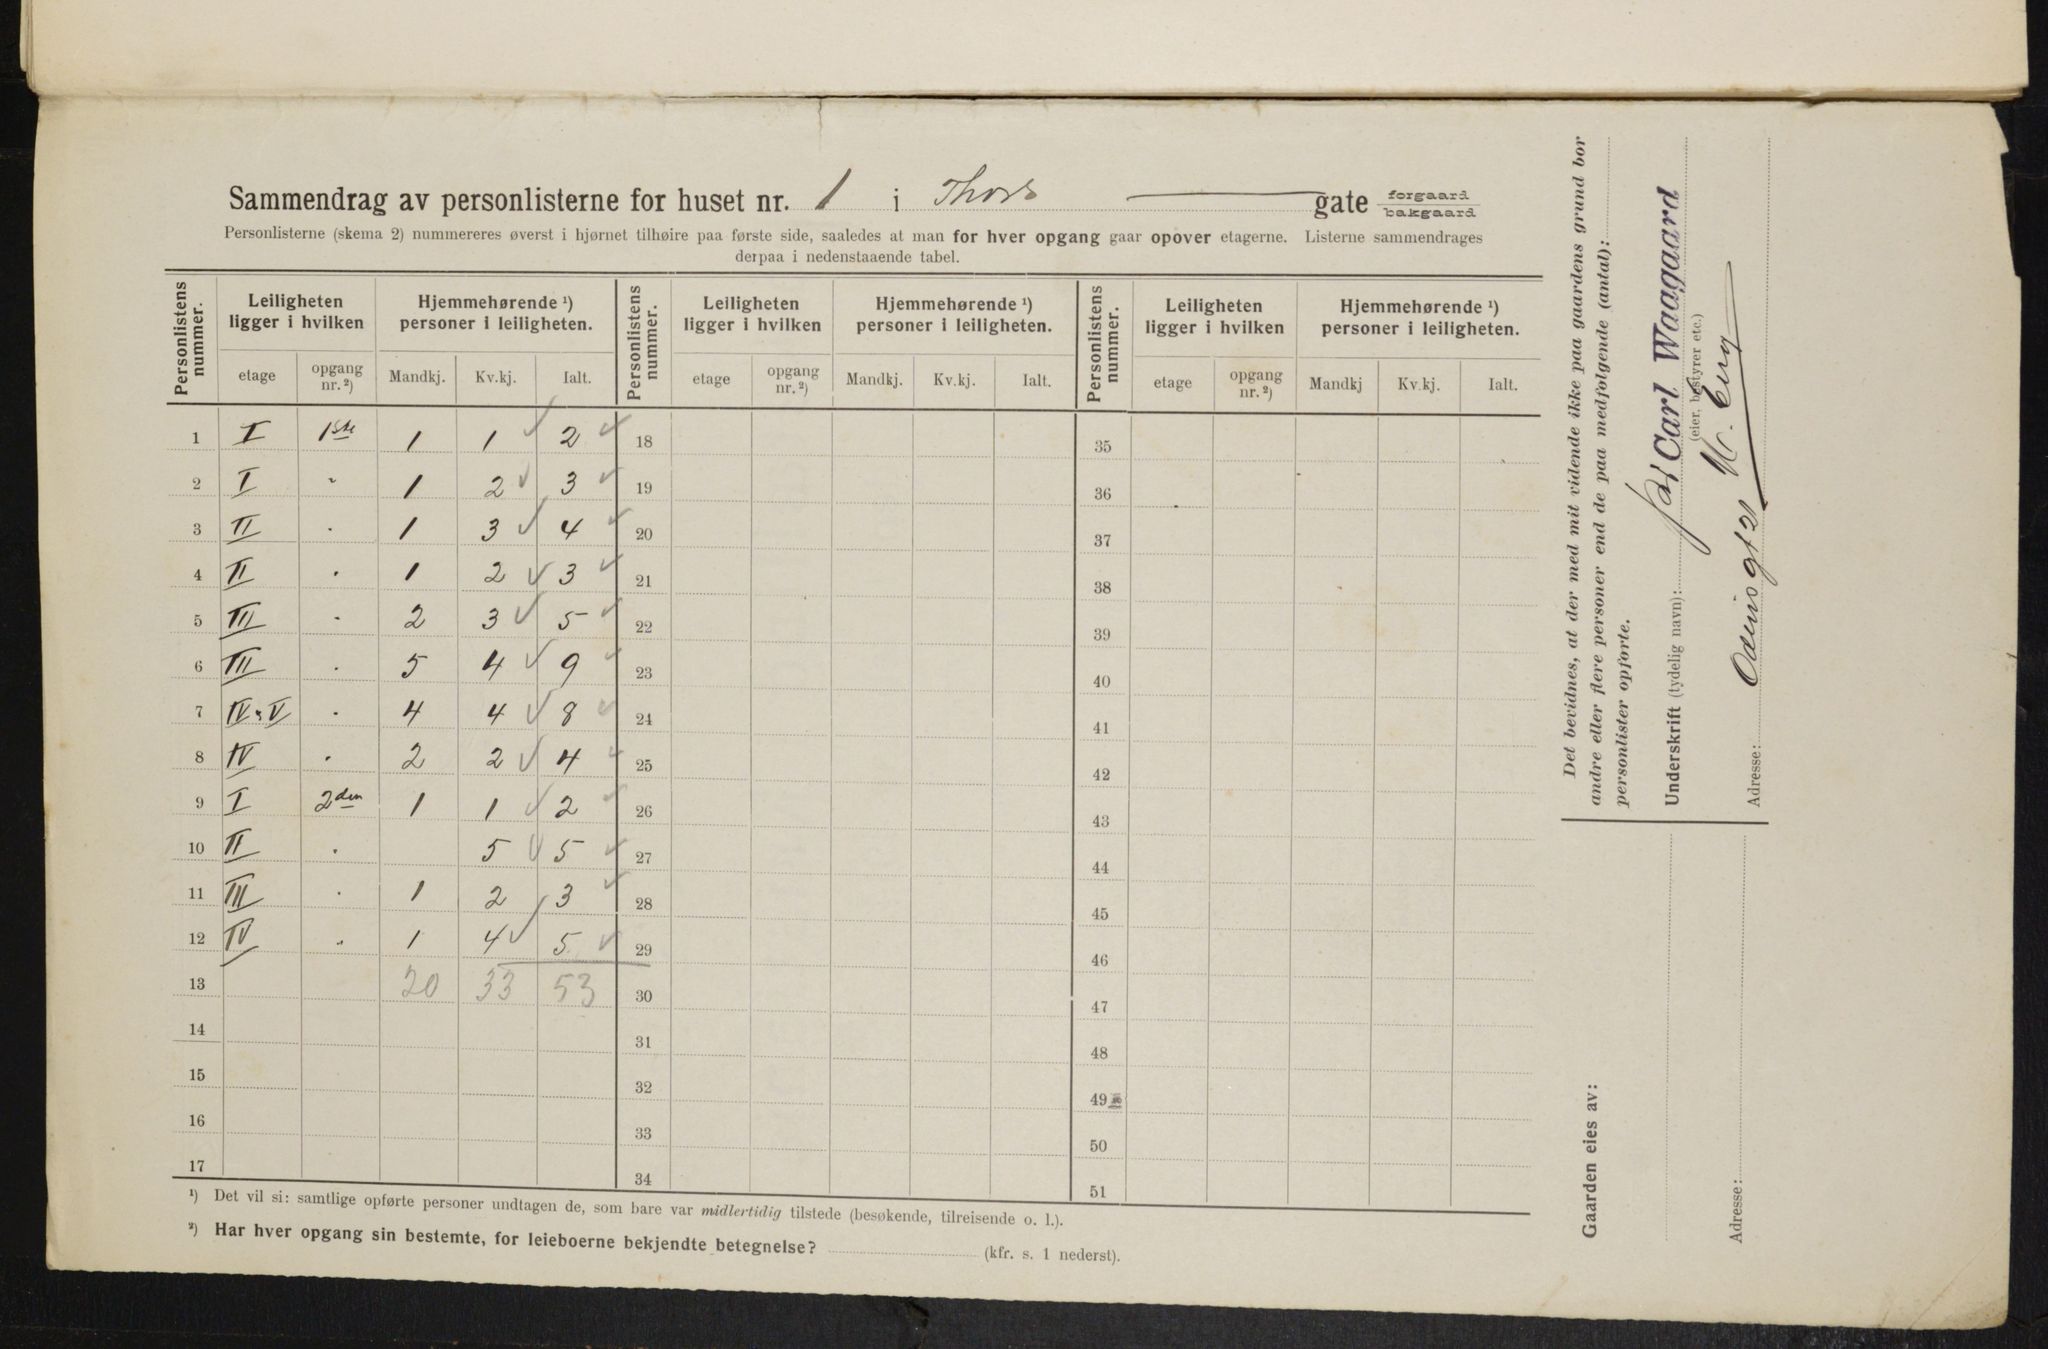 Sammendrag av personlisterne for huset nr. 1 i Thors gate forgaard bakgaard
Personlisterne (skema 2) nummereres øverst i hjørnet tilhøire paa første side, saaledes at man for hver opgang gaar opover etagerne. Listerne sammendrages
derpaa i nedenstaaende tabel.
Personlistens nummer. Leiligheten ligger i hvilken Hjemmehørende ¹) personer i leiligheten. Personlistens nummer. Leiligheten ligger i hvilken Hjemmehørende ¹) personer i leiligheten. Personlistens nummer. Leiligheten ligger i hvilken Hjemmehørende ¹) personer i leiligheten.
etage opgang nr. ²) Mandkj. Kv.kj. Ialt. etage opgang nr. ²) Mandkj. Kv.kj. Ialt. etage opgang nr. ²) Mandkj Kv.kj. Ialt.
1 I 1ste 1 1 2 18 35
2 I " 1 2 3 19 36
3 II " 1 3 4 20 37
4 II " 1 2 3 21 38
5 III " 2 3 5 22 39
6 III " 5 4 9 23 40
7 IV " V " 4 4 8 24 41
8 IV " 2 2 4 25 42
9 I 2den 1 1 2 26 43
10 II " 5 5 27 44
11 III " 1 2 3 28 45
12 IV " 1 4 5 29 46
13 20 33 53 30 47
14 31 48
15 32 49
16 33 50
17 34 51
¹) Det vil si: samtlige opførte personer undtagen de, som bare var midlertidig tilstede (besøkende, tilreisende o. l.).
²) Har hver opgang sin bestemte, for leieboerne bekjendte betegnelse? (kfr. s. 1 nederst).
Det bevidnes, at der med mit vidende ikke paa gaardens grund bor
andre eller flere personer end de paa medfølgende (antal):
personlister opførte.
Underskrift (tydelig navn): Carl Waagaard
(eier, bestyrer etc.)
Adresse: Odinsgt 21
Gaarden eies av:
Adresse: